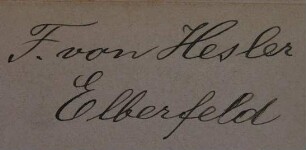 F. von Hesler
Elberfeld